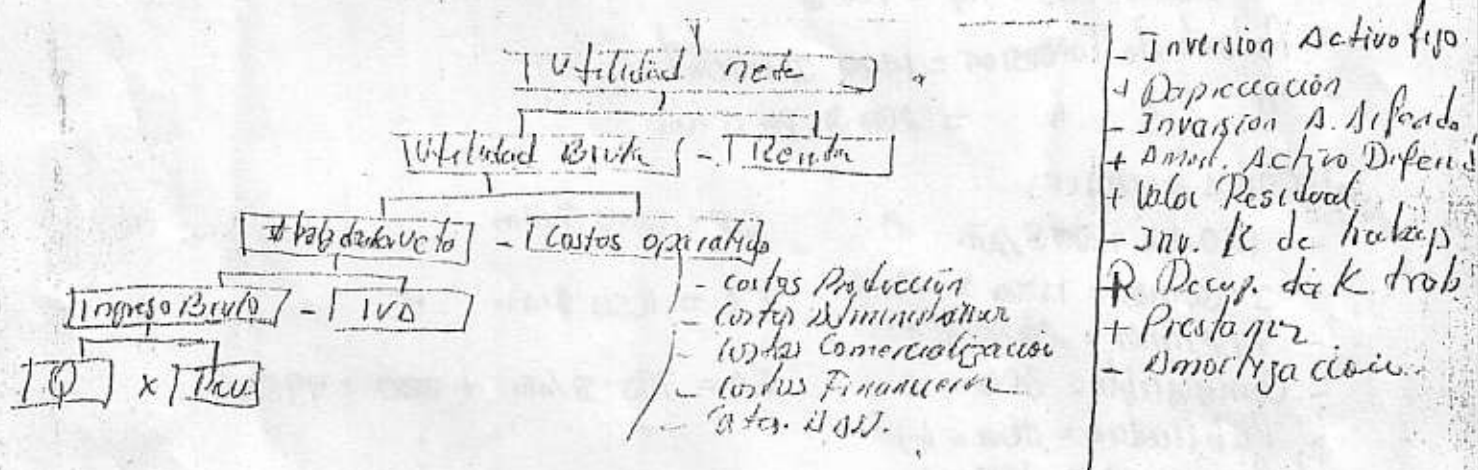 Utilidad neta
Utilidad Bruta - Renta
- Costos operativo
Ingreso Bruto - IVA
Q x
- costos Producción
- costos Administrativ
- costos Comercialización
- costos Financieros
- Inversion Activo fijo
+ Depreciación
- Inversion A. Diferido
+ Amort. Activo Diferi.
+ Valor Residual
- Inv. K de trabajo
Recup. de K trab.
+ Prestamo
- Amortización